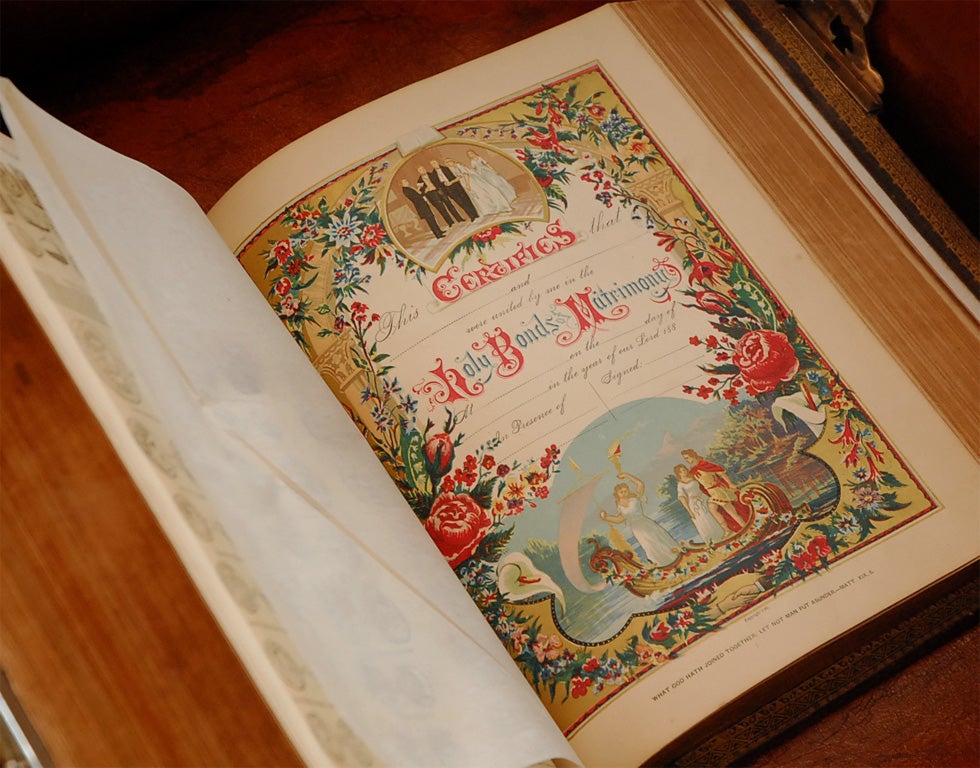 This CERTIFIES that
and
were united by me in the
Holy Bonds of Matrimony
At on the day of
in the year of our Lord 188
In Presence of Signed:
WHAT GOD HATH JOINED TOGETHER, LET NOT MAN PUT ASUNDER.—MATT. XIX, 6.